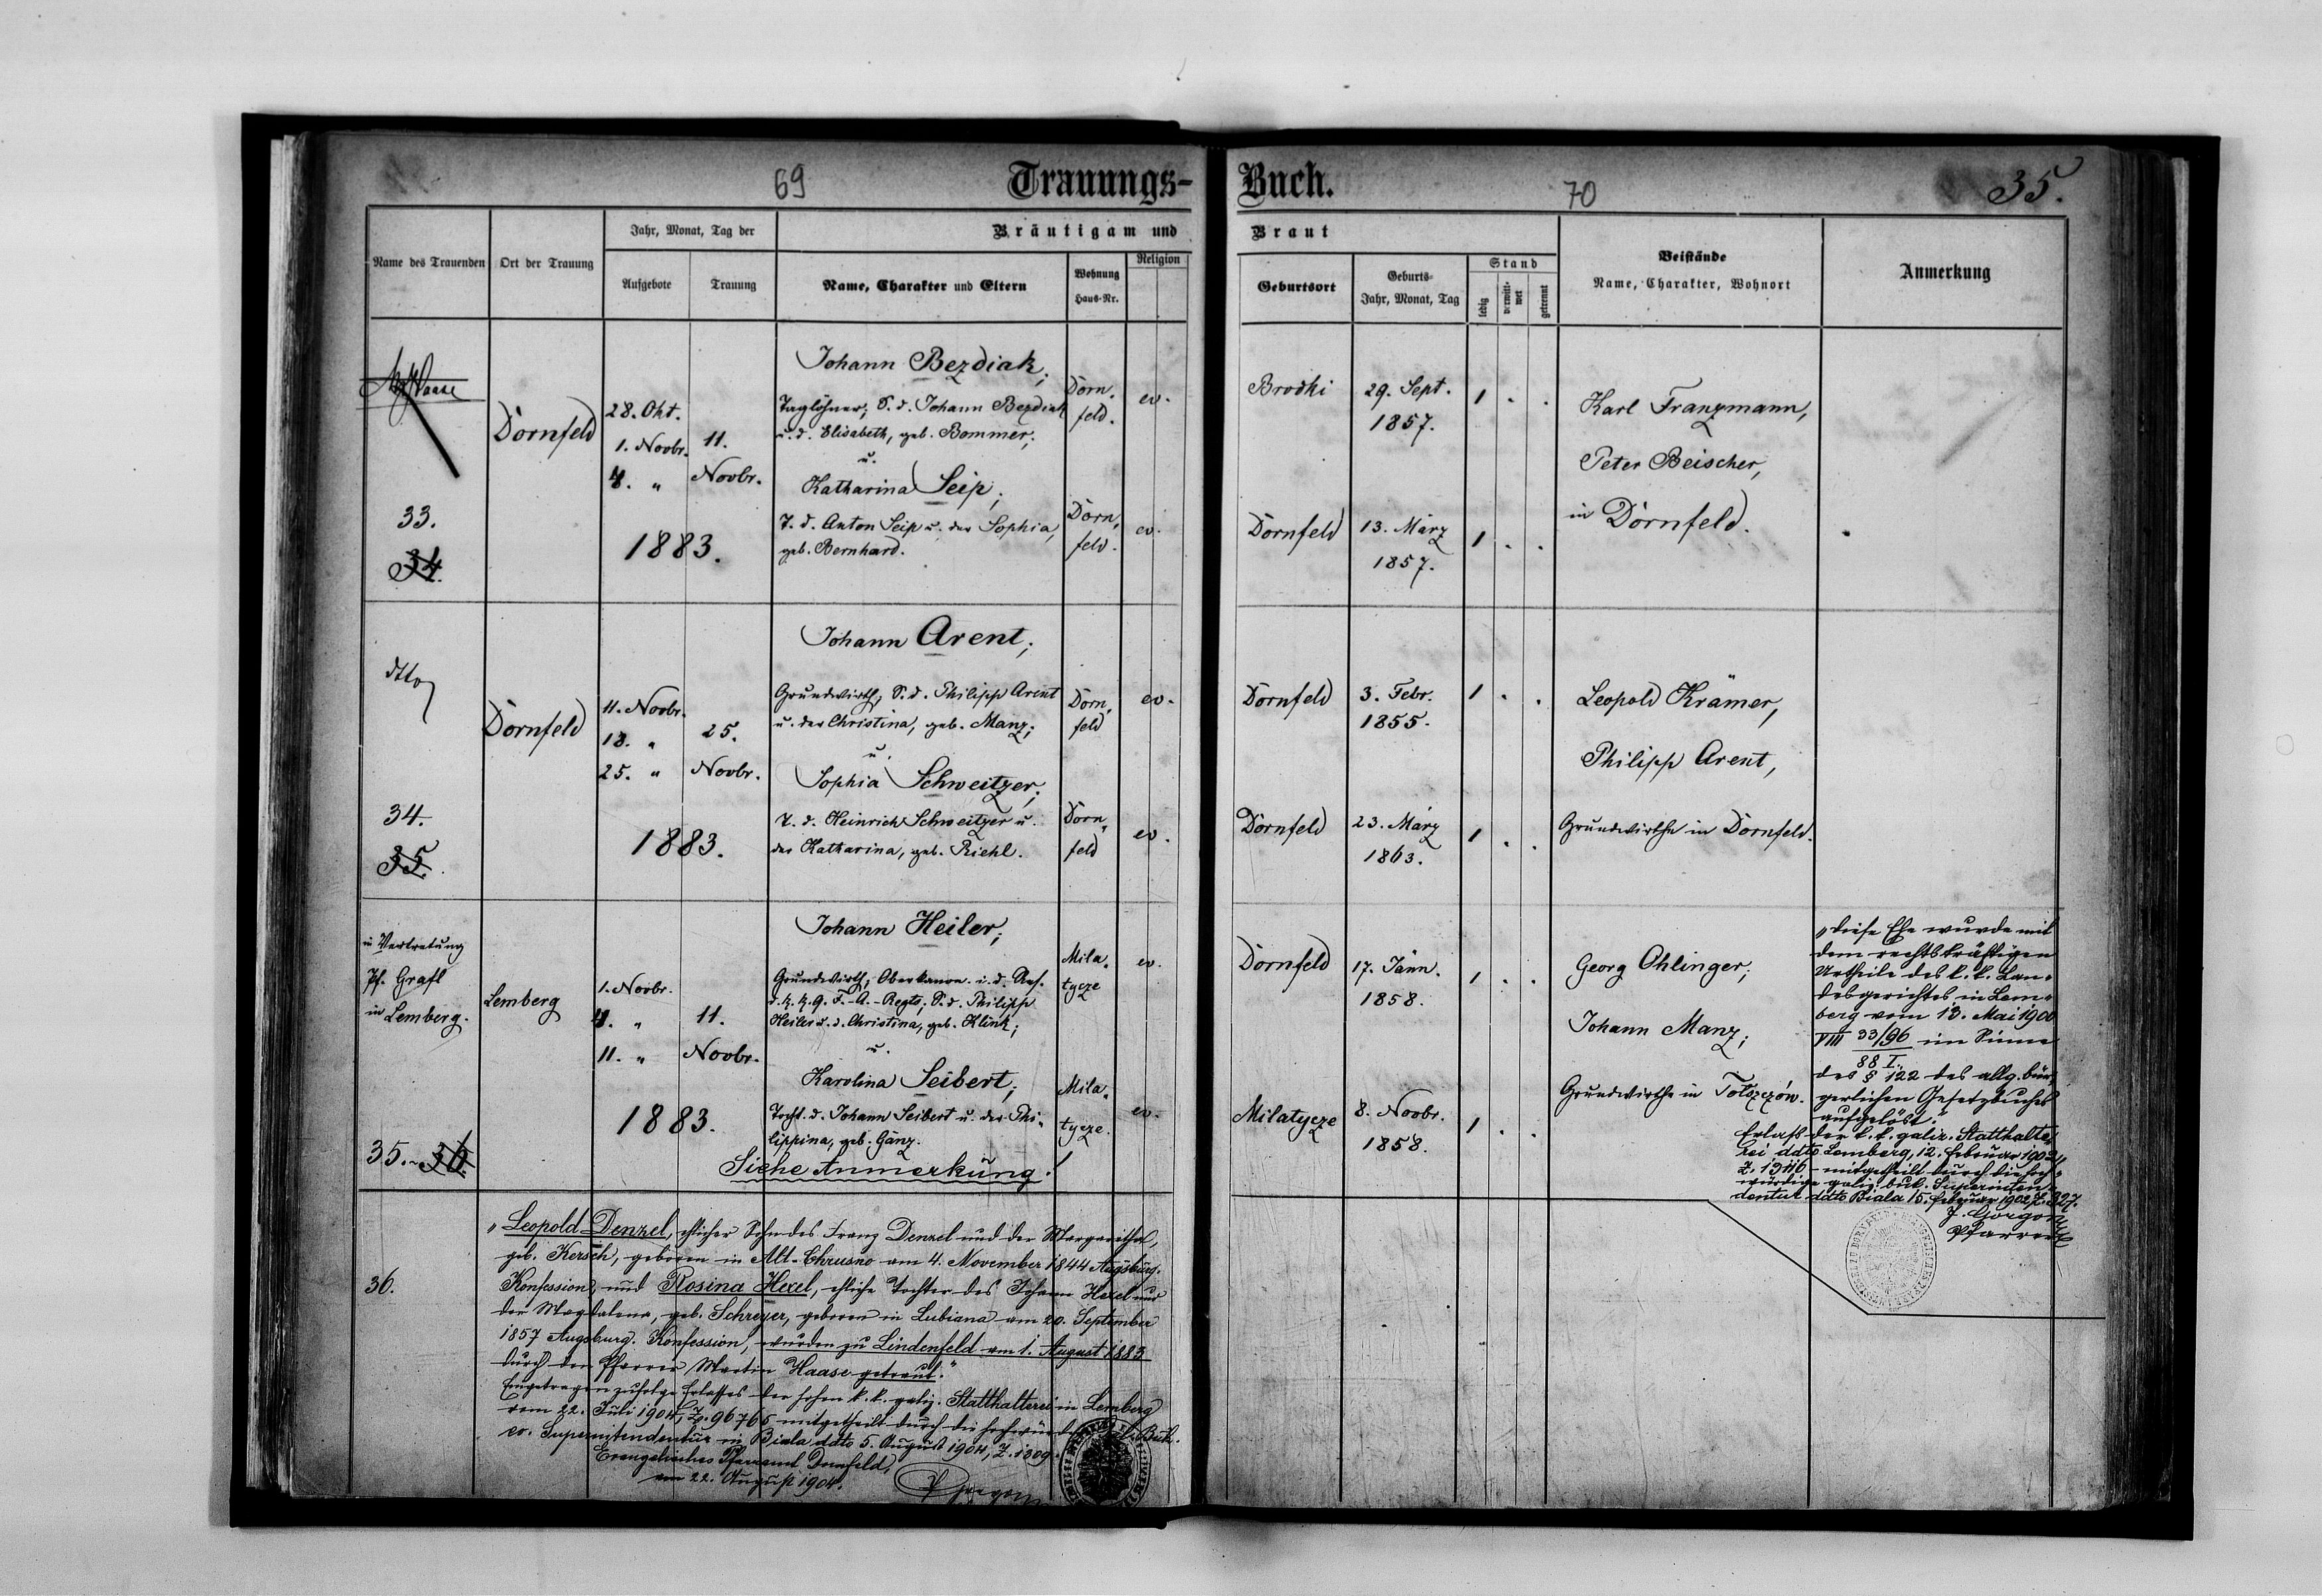 69
Trauungs-
Buch.
70
35.
Name des Trauenden
Ort der Trauung
Jahr, Monat, Tag der
Aufgebote
Trauung
Bräutigam und
Name, Charakter und Eltern
Wohnung
Haus-Nr.
Religion
Braut
Geburtsort
Geburts-
Jahr, Monat, Tag
Stand
ledig
verwitt-
wet
getrennt
Beistände
Name, Charakter, Wohnort
Anmerkung
Haase
33.
34.
Dornfeld
28. Okt.
1. Novbr.
4. "
11.
Novbr.
1883.
Johann Bezdiak;
Taglöhner; S. d. Johann Bezdiak
u. d. Elisabeth, geb. Bommer;
u.
Katharina Seip;
T. d. Anton Seip u. der Sophia,
geb. Bernhard.
Dorn,
feld.
ev.
Dorn,
feld.
ev.
Brodki
29. Sept.
1857.
1 . .
Dornfeld
13. März
1857.
1 . .
Karl Franzmann,
Peter Beischer,
in Dornfeld.
dtto
34.
35.
Dornfeld
11. Novbr.
18. "
25. "
25.
Novbr.
1883.
Johann Arent;
Grundwirth; S. d. Philipp Arent
u. der Christina, geb. Manz;
u.
Sophia Schweitzer;
T. d. Heinrich Schweitzer u.
der Katharina, geb. Riehl.
Dorn,
feld
ev.
Dorn,
feld
ev.
Dornfeld
3. Febr.
1855.
1 . .
Dornfeld
23. März
1863.
1 . .
Leopold Krämer,
Philipp Arent,
Grundwirthe in Dornfeld.
in Vertretung
Pf. Grafl
in Lemberg.
35. 36.
Lemberg
1. Novbr.
4. "
11. "
11.
Novbr.
1883.
Johann Heiler;
Grundwirth; Oberkanon. i. d. Res.
d. k. k. 9. F.-A.-Regts; S. d. Philipp
Heiler u. d. Christina, geb. Klink;
u.
Karolina Seibert;
Tocht. d. Johann Seibert u. der Phi-
lippina, geb. Gänz.
Siehe Anmerkung!
Mila,
tycze
ev.
Mila,
tycze.
ev.
Dornfeld
17. Jänn.
1858.
1 . .
Milatycze
8. Novbr.
1858.
1 . .
Georg Ohlinger;
Johann Manz;
Grundwirthe in Tołszczów.
"Diese Ehe wurde mit
dem rechtskräftigen
Urtheile des k. k. Lan-
desgerichtes in Lem-
berg vom 13. Mai 1900
VIII 33/96 im Sinne
88 I.
des § 122 des allg. bür-
gerlichen Gesetzbuches
aufgelöst."
Erlaß der k. k. galiz. Statthalte-
rei ddto Lemberg, 12. Februar 1902,
mitgetheilt durch die hoch-
würdige galiz. buk. Superinten-
dentur ddto Biala 15. Februar 1902, Z. 327.
J. Gorgon
Pfarrer
36.
"Leopold Denzel, ehlicher Sohn des Franz Denzel und der Margaretha,
geb. Kersch, geboren in Alt-Chrusno am 4. November 1844 Augsburg.
Konfession, und Rosina Hexel, ehliche Tochter des Johann Hexel und
der Magdalena, geb. Schreyer, geboren in Lubiana am 20. September
1857 Augsburg. Konfession, wurden zu Lindenfeld am 1. August 1883
durch den Pfarrer Martin Haase getraut."
Eingetragen zufolge Erlasses der hohen k. k. galiz. Statthalterei in Lemberg
vom 22. Juli 1904, Z. 96765 mitgetheilt durch die hochwürd. Buk.
ev. Superintendentur in Biala ddto 5. August 1904, Z. 1309.
Evangelisches Pfarramt Dornfeld,
am 22. August 1904.
Gorgon